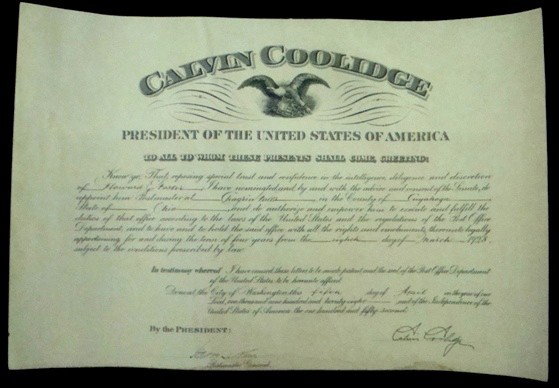 CALVIN COOLIDGE
PRESIDENT OF THE UNITED STATES OF AMERICA
TO ALL TO WHOM THESE PRESENTS SHALL COME, GREETING:
Know ye, That, reposing special trust and confidence in the intelligence, diligence and discretion
of I have nominated, and by and with the advice and consent of the Senate, do
appoint him Postmaster at Chagrin Falls in the County of Cuyahoga
State of and do authorize and empower him to execute and fulfil the
duties of that office according to the laws of the United States and the regulations of the Post Office
Department, and to have and to hold the said office with all the rights and emoluments thereunto legally
appertaining for and during the term of four years from the eighth day of March 1928
subject to the conditions prescribed by law.
In testimony whereof I have caused these letters to be made patent and the seal of the Post Office Department
of the United States to be hereunto affixed
Done at the City of Washington this day of April in the year of our
Lord, one thousand nine hundred and twenty-eight and of the Independence of the
United States of America the one hundred and fifty second.
By the PRESIDENT:
Calvin Coolidge
Postmaster General.